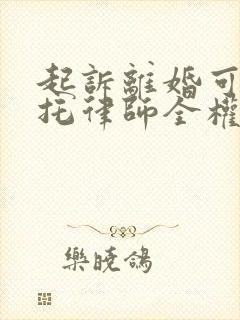 起訴離婚可
托律師全權
樂曉鴿